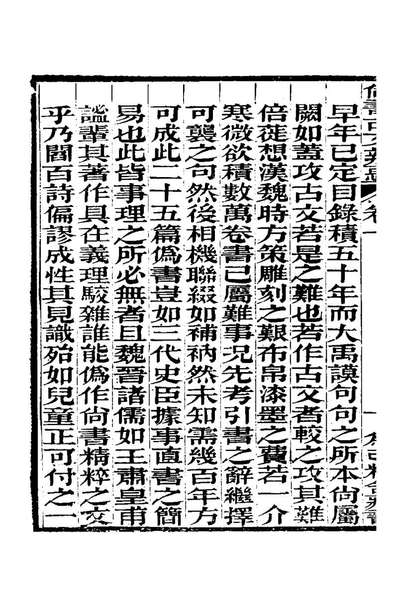 早年已定目錄積五十年而大禹謨句句之所本尚屬
闕如蓋攻古文若是之難也若作古文者較之攻其難
倍徙想漢魏時方策雕刻之艱布帛漆墨之費若一介
寒微欲積數萬卷書已屬難事況先考引書之辭繼擇
可襲之句然後相機聯綴如補衲然未知需幾百年方
可成此二十五篇僞書豈如三代史臣據事直書之簡
易也此皆事理之所必無者且魏晉諸儒如王肅皇甫
謐輩其著作具在義理駁雜誰能僞作尙書精粹之文
乎乃閻百詩偏謬成性其見識殆如兒童正可付之一